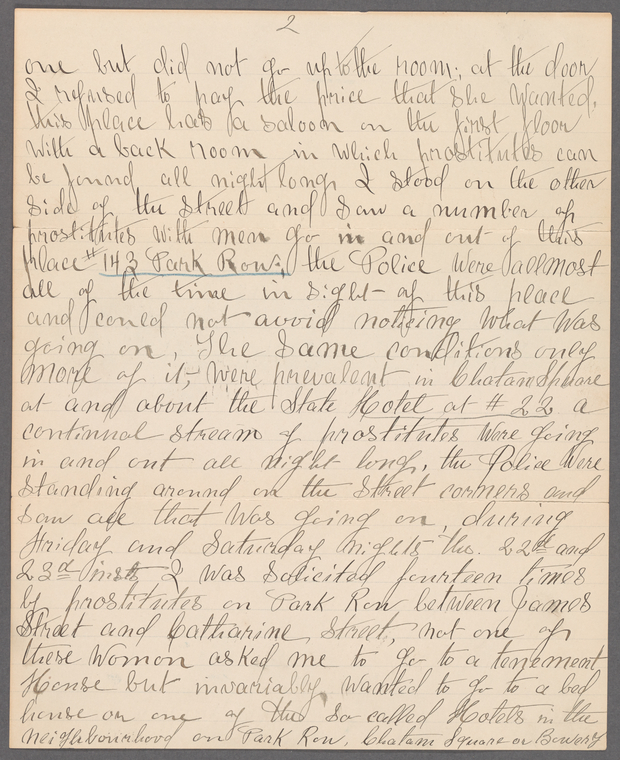 2
one but did not go up to the room; at the door
I refused to pay the price that she wanted.
this place has a saloon on the first floor
with a back room in which prostitutes can
be found all night long, I stood on the other
side of the street and saw a number of
prostitutes with men go in and out of this
place # 143 Park Row; the Police were allmost
all of the time in sight of this place
and could not avoid noticing what was
going on, The same conditions only
more of it, were prevalent in Chatam Square
at and about the State Hotel at # 22 a
continual stream of prostitutes were going
in and out all night long, the Police were
standing around on the street corners and
saw all that was going on, during
Friday and Saturday nights the. 22nd and
23d inst, I was solicited fourteen times
by prostitutes on Park Row between James
Street and Catharine Street, not one of
these women asked me to go to a tenement
House but invariably wanted to go to a bed
house or one of the so called Hotels in the
neighbourhood on Park Row, Chatam Square or Bowery